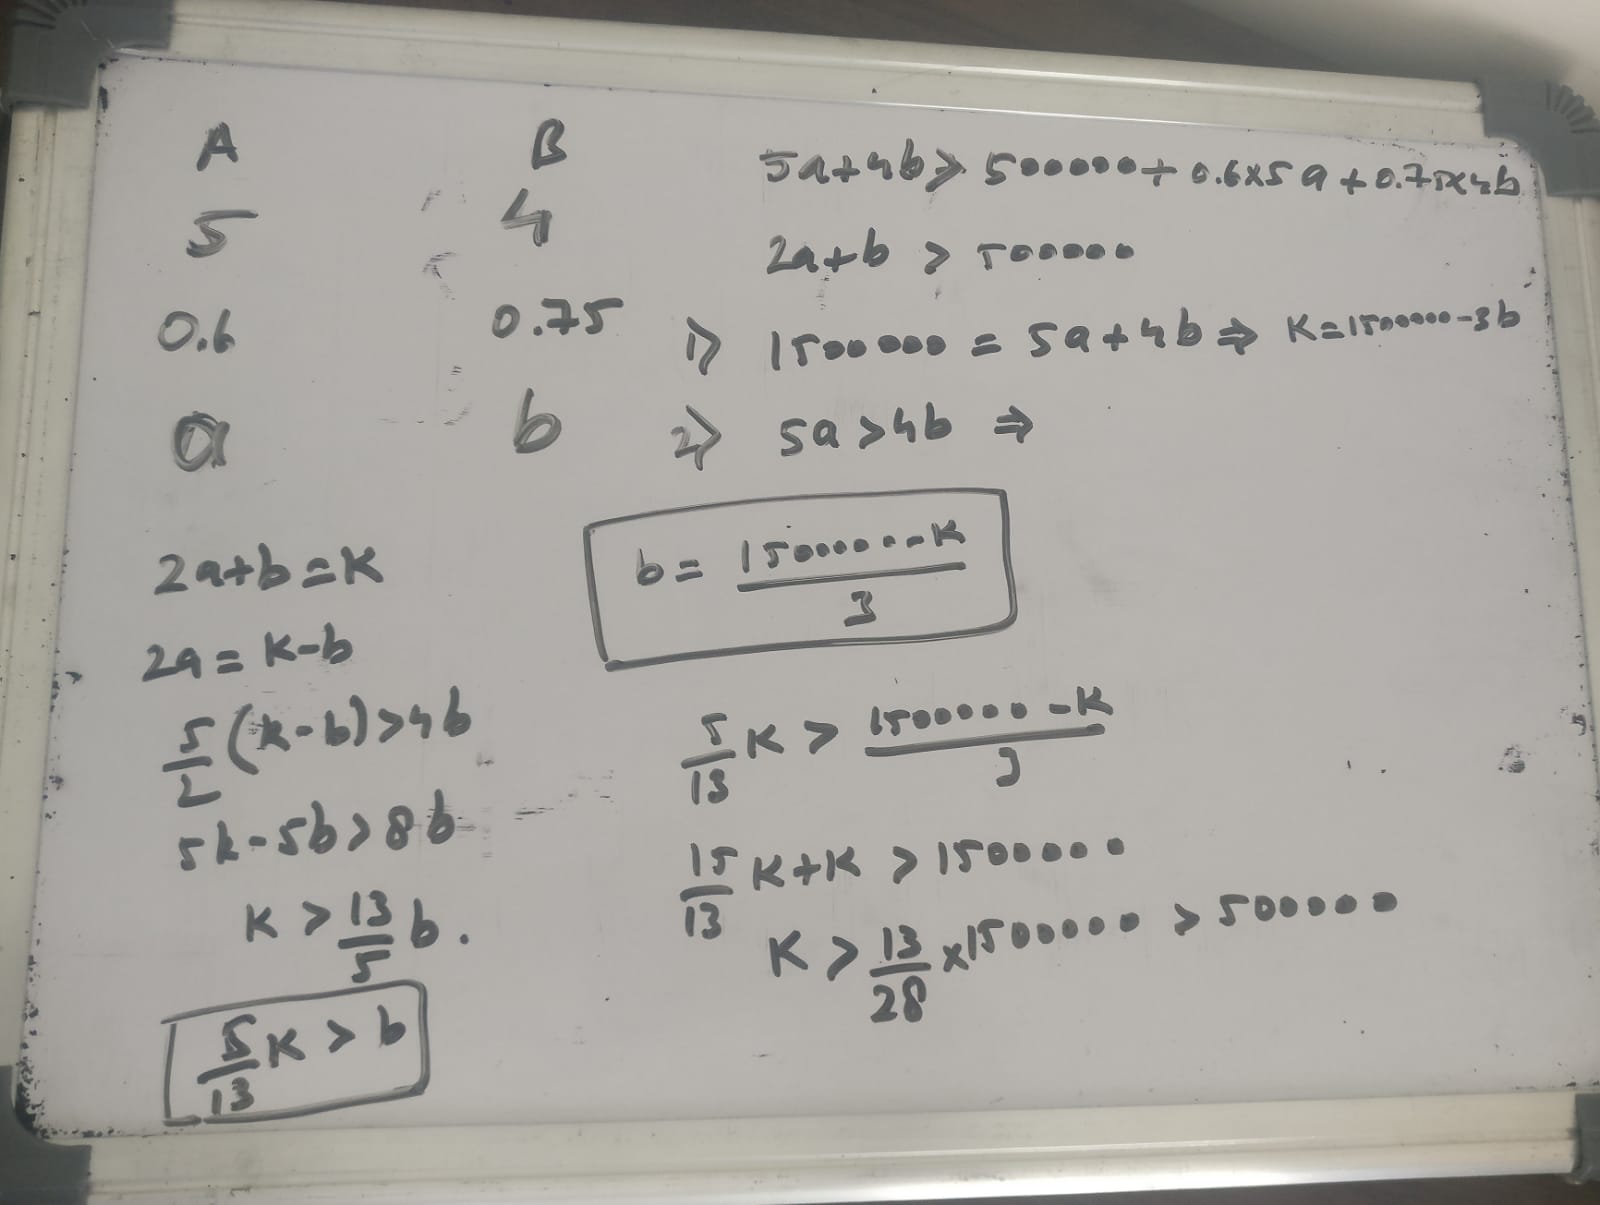 A B
5 4
0.6 0.75
a b
5a+4b > 500000 + 0.6x5a + 0.75x4b
2a+b > 500000
1) 1500000 = 5a+4b ⇒ K=1500000-3b
2) 5a>4b ⇒
b = 1500000-K / 3
2a+b=K
2a=K-b
5/2 (k-b)>4b
5k-5b>8b
K > 13/5 b.
5/13 K > b
5/13 K > 1500000-K / 3
15/13 K+K > 1500000
K > 13/28 x1500000 > 500000